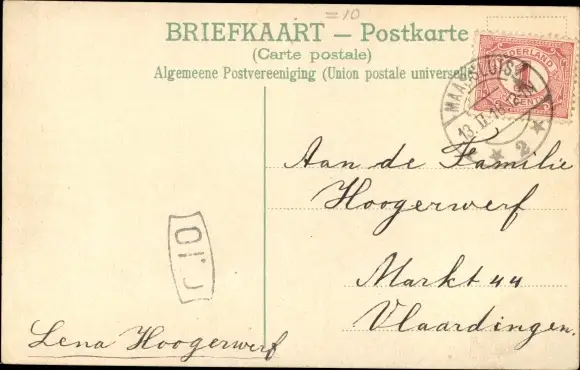 =10
BRIEFKAART – Postkarte
(Carte postale)
Algemeene Postvereeniging (Union postale universelle)
NEDERLAND
1
CENT
MAASSLUIS
13.II.18
2
Aan de Familie
Hoogerwerf
Markt 44
Vlaardingen.
Lena Hoogerwerf